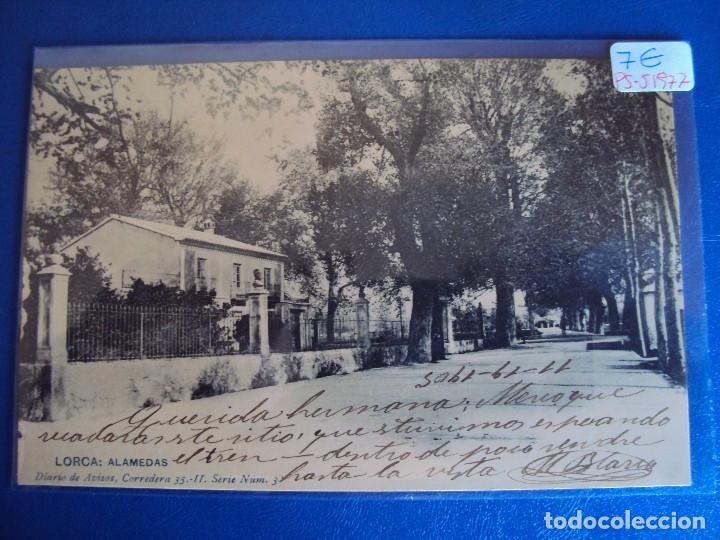 7€
PS-51977
11-19-1905
Querida hermana: Menoque
este sitio, que stuvimos esperando
el tren - dentro de poco vendre
hasta la vista M. Blarig
LORCA: ALAMEDAS
Diario de Avisos, Corredera 35.-II. Serie Núm. 3
todocoleccion.net